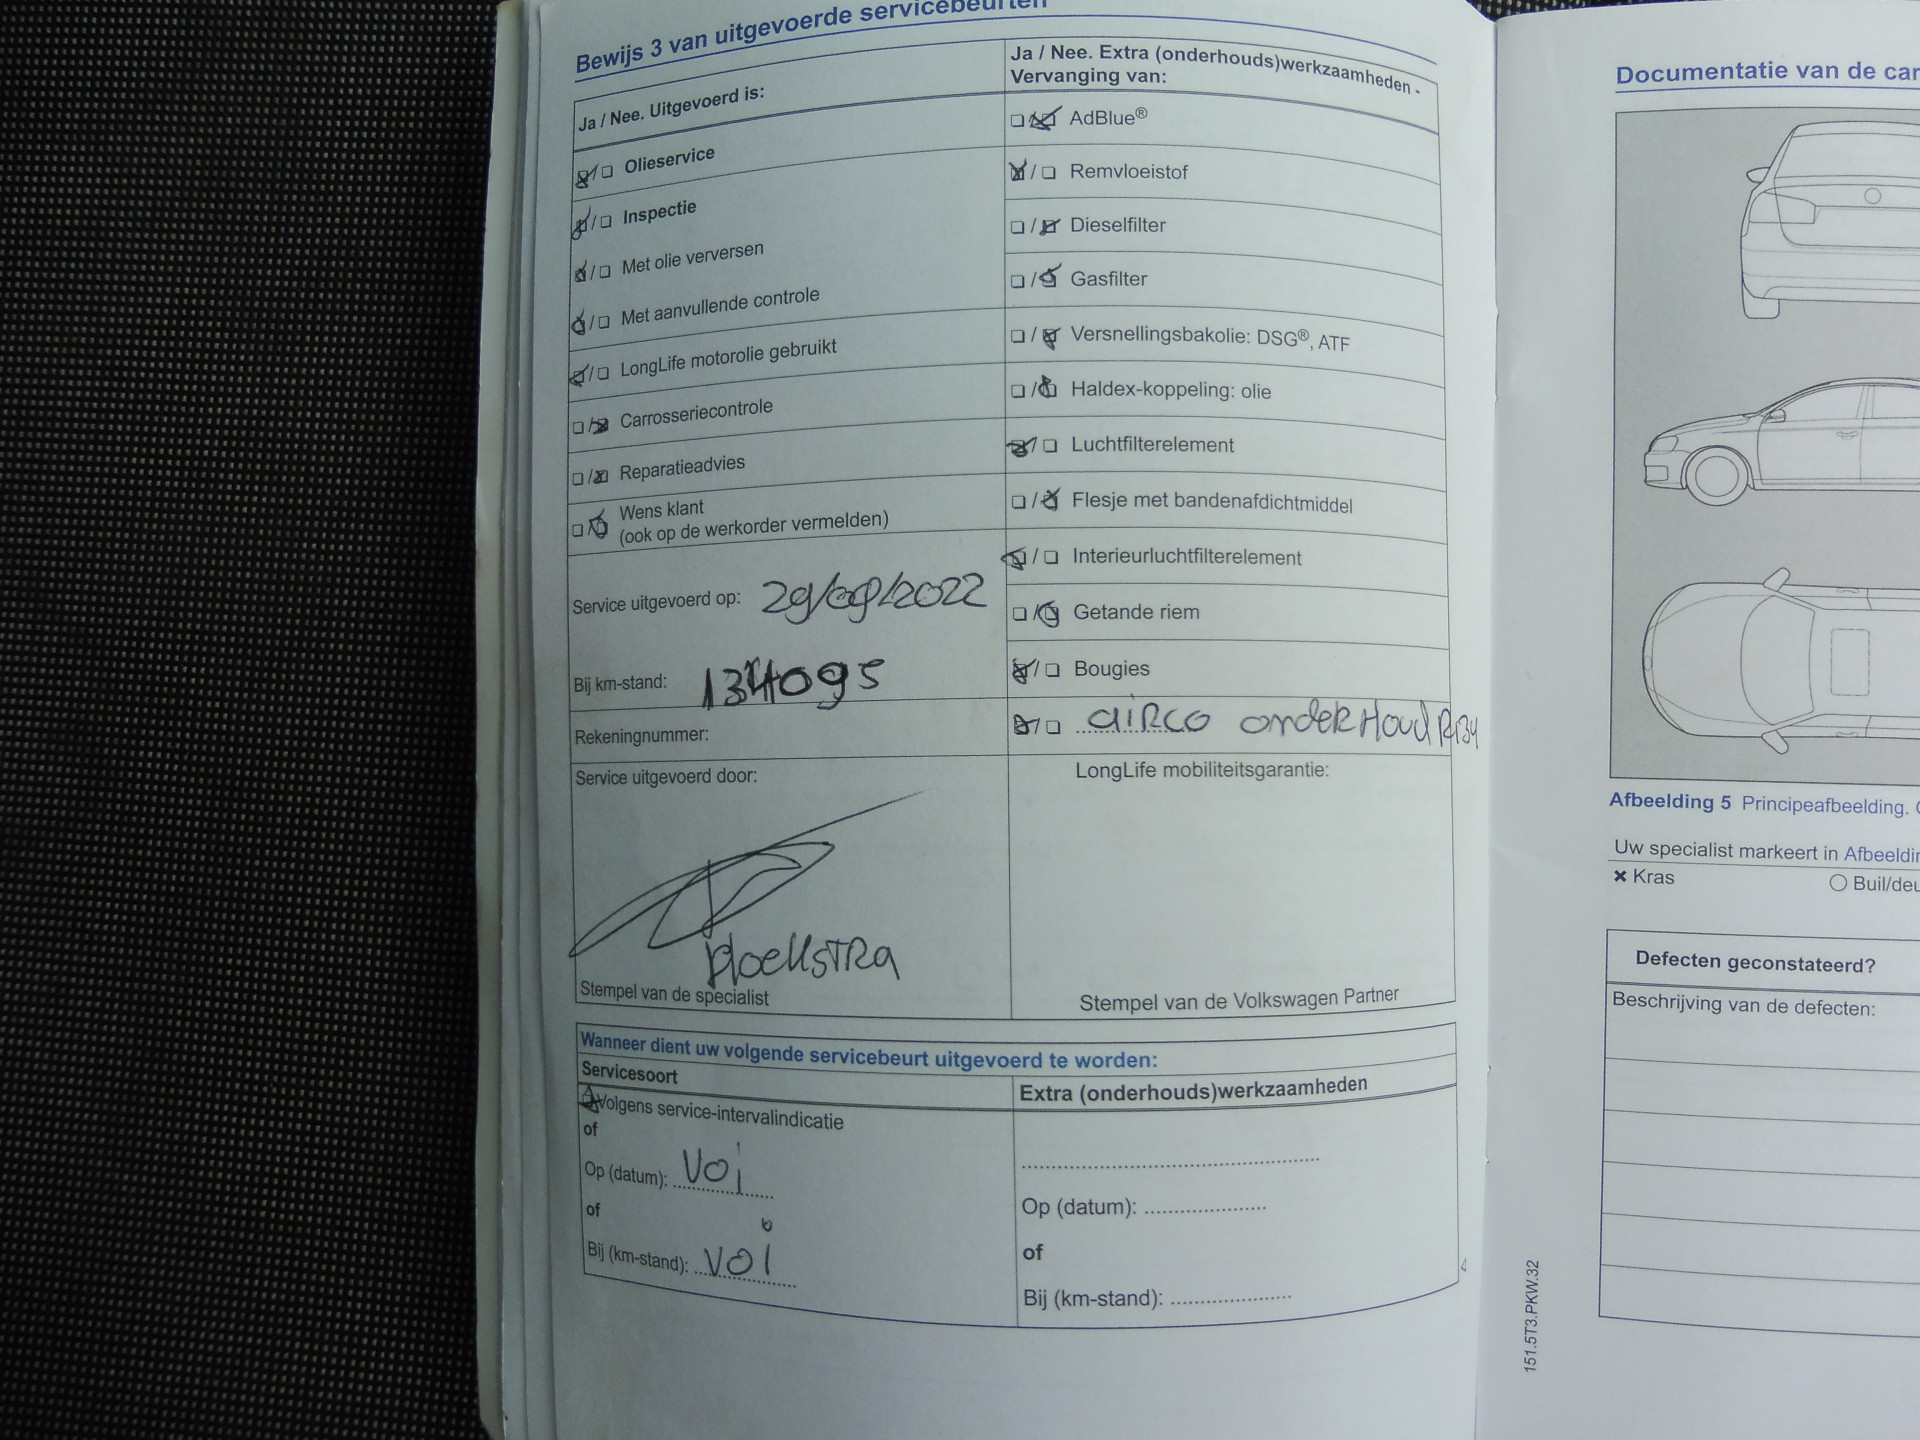 Bewijs 3 van uitgevoerde servicebeurten
Ja / Nee. Uitgevoerd is:
☒/☐ Olieservice
☒/☐ Inspectie
☒/☐ Met olie verversen
☒/☐ Met aanvullende controle
☒/☐ LongLife motorolie gebruikt
☐/☒ Carrosseriecontrole
☐/☒ Reparatieadvies
☐/☒ Wens klant
(ook op de werkorder vermelden)
Service uitgevoerd op: 29/09/2022
Bij km-stand: 134095
Rekeningnummer:
Service uitgevoerd door:
Hoekstra
Stempel van de specialist
Ja / Nee. Extra (onderhouds)werkzaamheden -
Vervanging van:
☐/☒ AdBlue®
☒/☐ Remvloeistof
☐/☒ Dieselfilter
☐/☒ Gasfilter
☐/☒ Versnellingsbakolie: DSG®, ATF
☐/☒ Haldex-koppeling: olie
☒/☐ Luchtfilterelement
☐/☒ Flesje met bandenafdichtmiddel
☒/☐ Interieurluchtfilterelement
☐/☒ Getande riem
☒/☐ Bougies
☒/☐ airco onderhoud R134
LongLife mobiliteitsgarantie:
Stempel van de Volkswagen Partner
Wanneer dient uw volgende servicebeurt uitgevoerd te worden:
Servicesoort
☒ Volgens service-intervalindicatie
of
Op (datum): voi
of
Bij (km-stand): voi
Extra (onderhouds)werkzaamheden
Op (datum):
of
Bij (km-stand):
Documentatie van de car
Afbeelding 5 Principeafbeelding.
Uw specialist markeert in Afbeeldin
✖ Kras
○ Buil/deu
Defecten geconstateerd?
Beschrijving van de defecten:
151.5T3.PKW.32